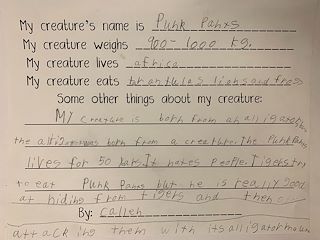 My creature's name is Punk Panxs
My creature weighs 900-1000 kg.
My creature lives africa
My creature eats lions and frogs
Some other things about my creature:
My creature is both from an alligator
the was both from a creature. The Punk Panxs
lives for 50 It hates people. Tigers try
to eat Punk Panxs but he is really good
at hiding from tigers and then
By: Callen
attacking them with its alligator